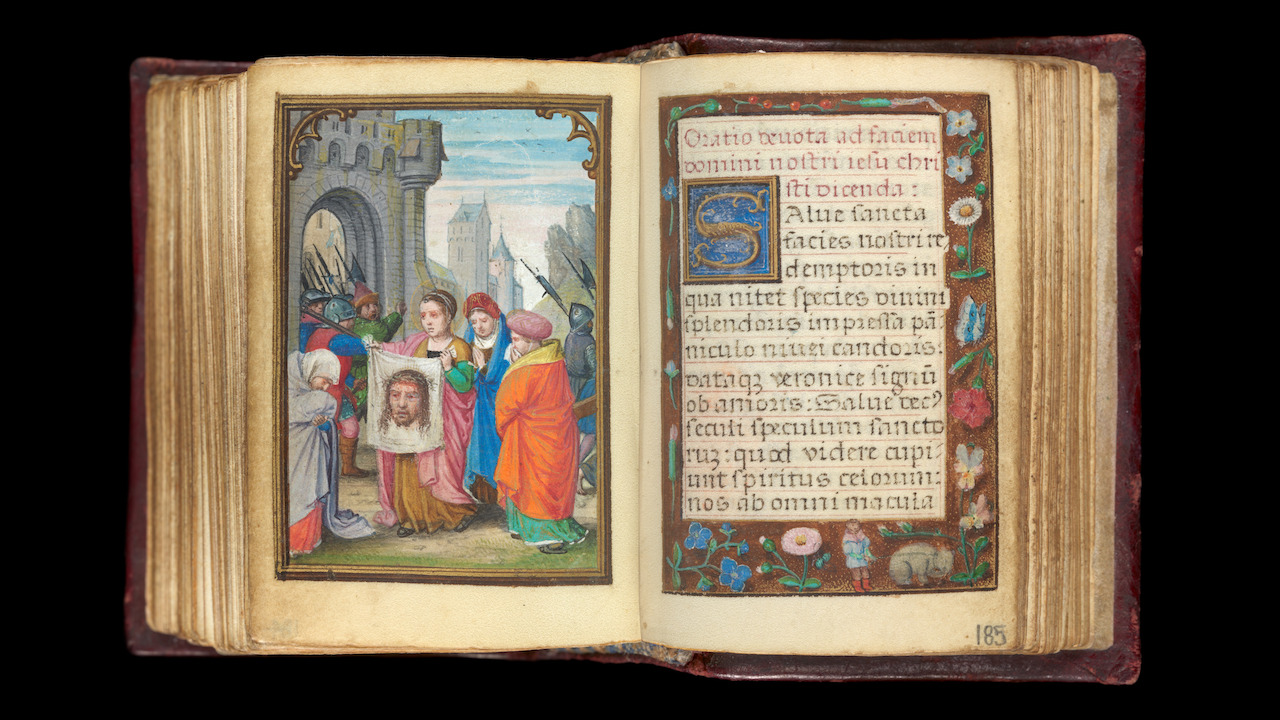 Oratio deuota ad faciem
domini nostri iesu chri
sti dicenda :
SAlue sancta
facies nostri re
demptoris in
qua nitet species diuini
splendoris impressa pā
niculo niuei candoris:
dataqꝫ veronice signū
ob amoris: Salue dec⁹
seculi speculum sancto
ruꝫ: quod videre cupi
unt spiritus celorum:
nos ab omni macula
185